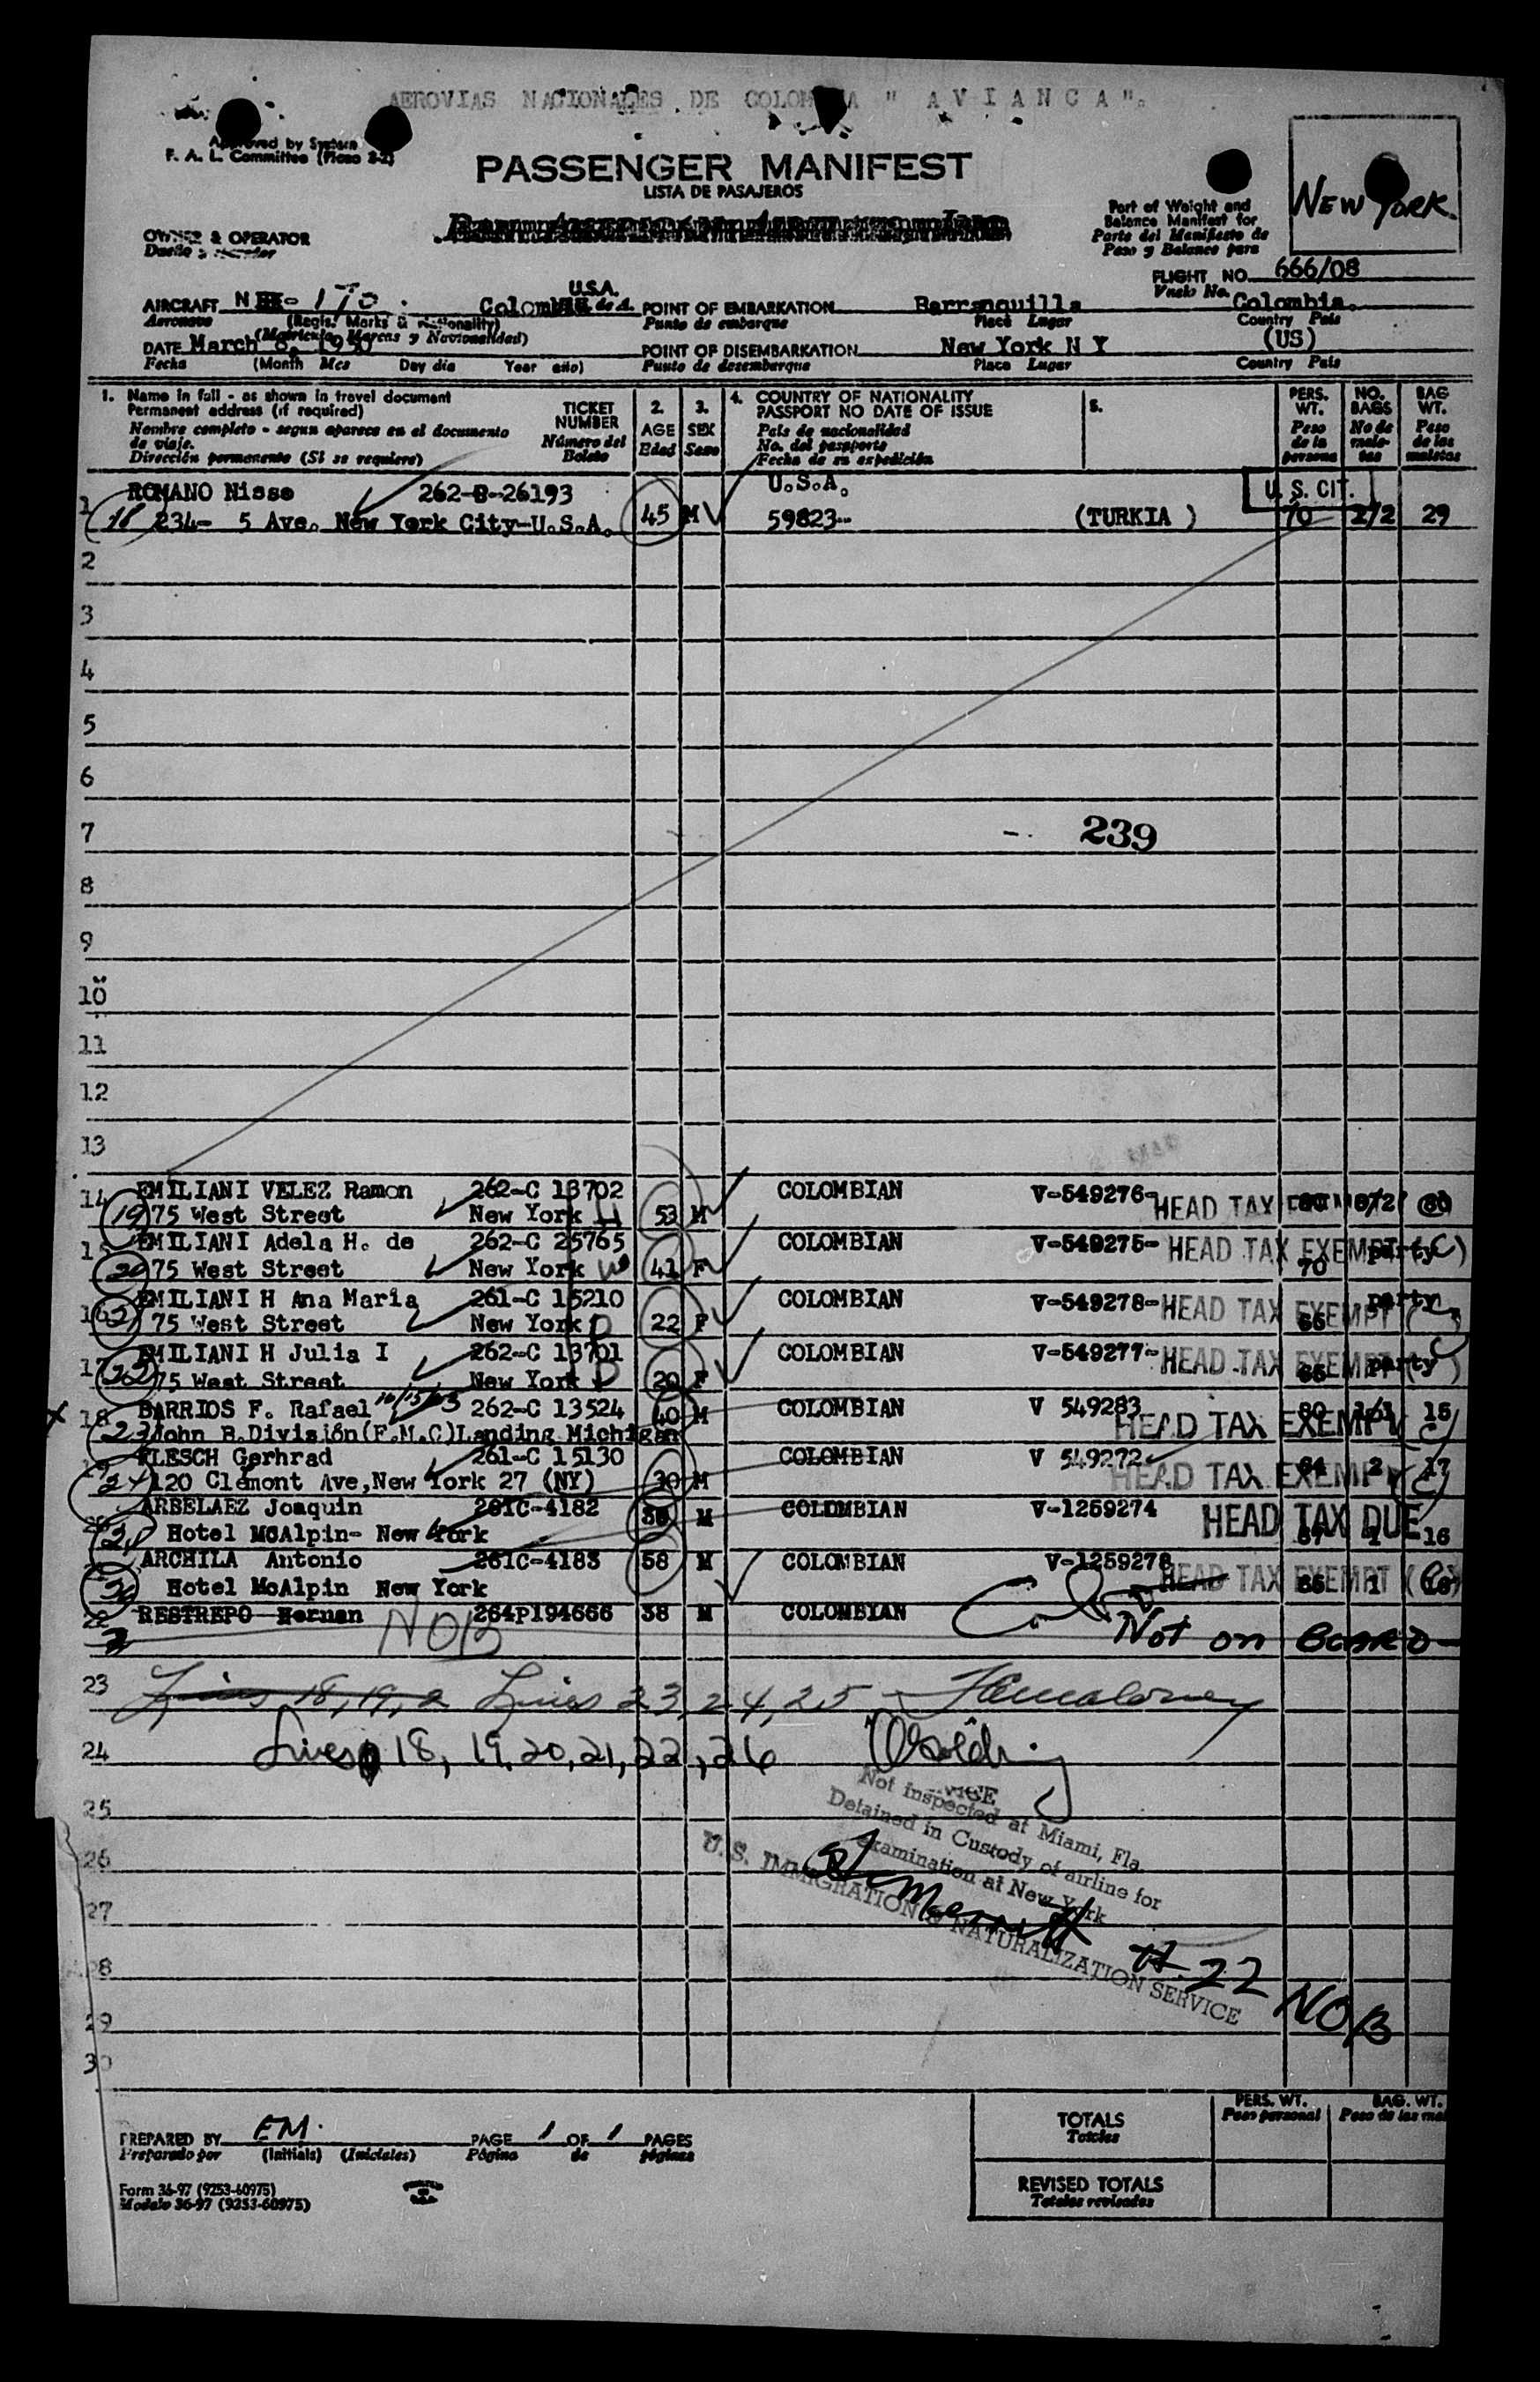 AEROVIAS NACIONALES DE COLOMBIA " A V I A N C A ".
Approved by System
F. A. L. Committee
PASSENGER MANIFEST
LISTA DE PASAJEROS
Part of Weight and
Balance Manifest for
Parte del Manifiesto de
Peso y Balance para
NEW YORK.
OWNER & OPERATOR
Dueño y operador
FLIGHT NO. 666/08
Vuelo No.
U.S.A.
AIRCRAFT N - 170. Colombia POINT OF EMBARKATION Barranquilla Colombia.
Aeronave (Regis. Marks & Nationality) Punto de embarque Place Lugar Country País
(Matrícula, Marcas y Nacionalidad)
DATE March 8, 1950 POINT OF DISEMBARKATION New York N Y (US)
Fecha (Month Mes Day día Year año) Punto de desembarque Place Lugar Country País
1. Name in full - as shown in travel document
Permanent address (if required)
Nombre completo - segun aparece en el documento
de viaje.
Dirección permanente (Si se requiere)
TICKET
NUMBER
Número del
Boleto
2.
AGE
Edad
3.
SEX
Sexo
4. COUNTRY OF NATIONALITY
PASSPORT NO DATE OF ISSUE
País de nacionalidad
No. del pasaporte
Fecha de su expedición
5.
PERS.
WT.
Peso
de la
persona
NO.
BAGS
No de
male-
tas
BAG
WT.
Peso
de las
maletas
1 ROMANO Nisso 262-B-26193 U.S.A. U. S. CIT.
18 234- 5 Ave. New York City-U.S.A. 45 M 59823-- (TURKIA ) 70 2/2 29
2
3
4
5
6
7 239
8
9
10
11
12
13
14 EMILIANI VELEZ Ramon 262-C 13702 COLOMBIAN V-549276-
19 75 West Street New York 53 M HEAD TAX
15 EMILIANI Adela H. de 262-C 25765 COLOMBIAN V-549275- HEAD TAX EXEMPT (C)
20 75 West Street New York 41 F 70 party
16 EMILIANI H Ana Maria 261-C 15210 COLOMBIAN V-549278- HEAD TAX EXEMPT party
75 West Street New York 22 F
17 EMILIANI H Julia I 262-C 13701 COLOMBIAN V-549277- HEAD TAX EXEMPT party
22 75 West Street New York 20 F
x 18 BARRIOS F. Rafael 262-C 13524 40 M COLOMBIAN V 549283 80 15
23 John B.División(F.M.C)Landing Michigan HEAD TAX EXEMPT
FLESCH Gerhrad 261-C 15130 COLOMBIAN V 549272 2 17
24 120 Clemont Ave,New York 27 (NY) 30 M HEAD TAX EXEMPT (C)
ARBELAEZ Joaquin 261C-4182 M COLOMBIAN V-1259274 HEAD TAX DUE
Hotel MCAlpin- New York 1 16
ARCHILA Antonio 261C-4183 58 M COLOMBIAN V-1259278 HEAD TAX EXEMPT
Hotel McAlpin New York 1
22 RESTREPO Hernan 264P194666 38 M COLOMBIAN
NOB Not on Board
23 Lines 18, 19, 2 Lines 23, 24, 25
24 Lines 18, 19, 20, 21, 22, 26
25
26
27
28
29
30
Not inspected at Miami, Fla.
Detained in Custody of airline for
examination at New York
U. S. IMMIGRATION & NATURALIZATION SERVICE
22 NOB
PREPARED BY EM. PAGE 1 OF 1 PAGES
Preparado por (Initials) (Iniciales) Página de páginas
TOTALS
Totales
PERS. WT.
Peso personal
BAG. WT.
REVISED TOTALS
Totales revisados
Form 36-97 (9253-60975)
Modelo 36-97 (9253-60975)